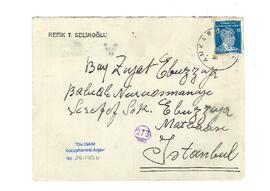 REFİK T. SELİMOĞLU
ANKARA
Bay Ziyat Ebuzziya
Nuruosmaniye
Şeref Sok. Ebuzziya
Matbaası
İstanbul
273
TDV İSAM
Kütüphanesi Arşivi
No